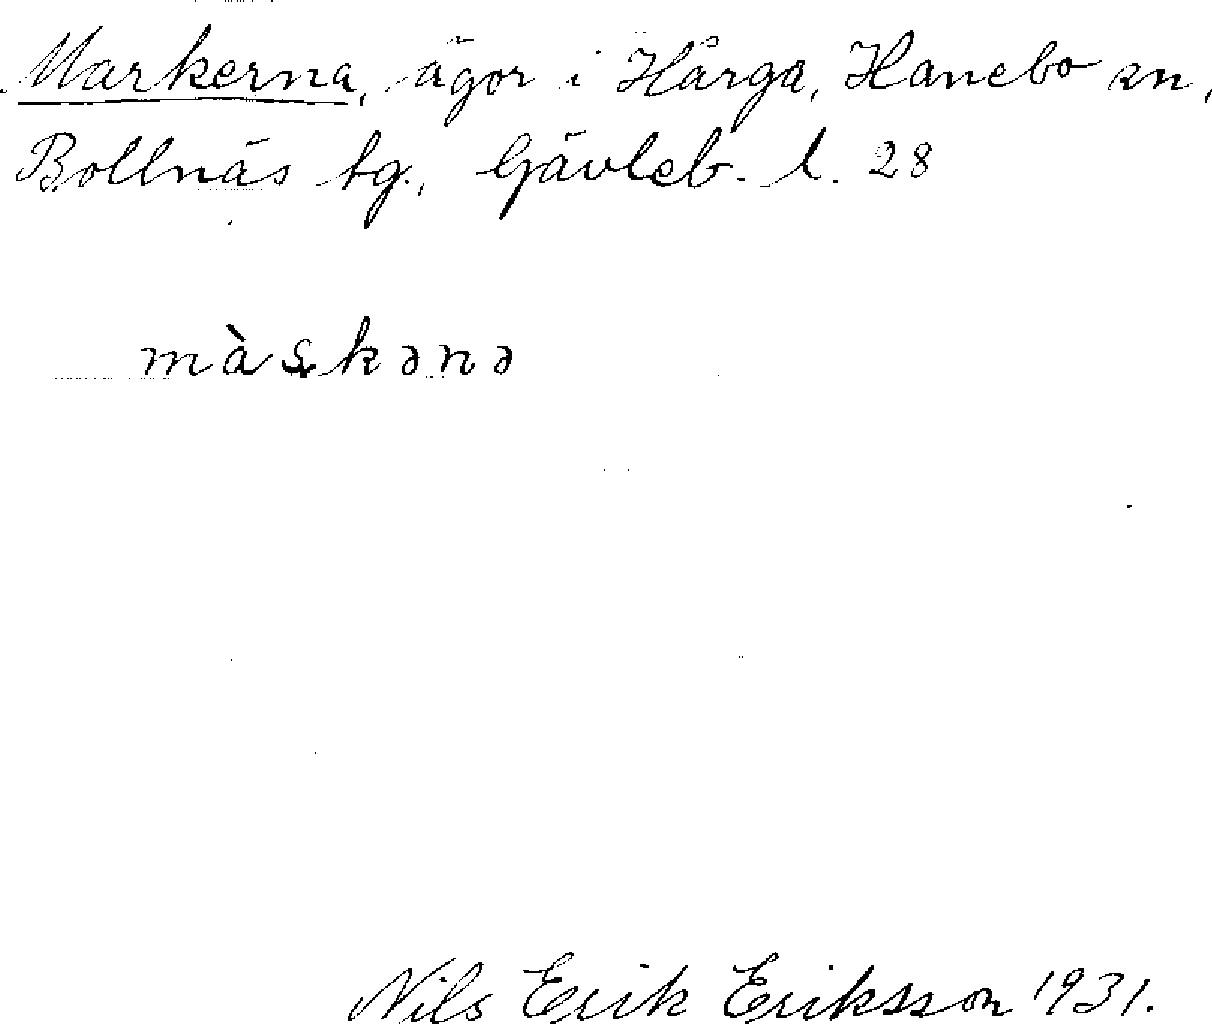 Markerna, ägor i Hårga, Hanebo sn,
Bollnäs tg., Gävleb. l. 28
màʂkənə
Nils Erik Eriksson 1931.